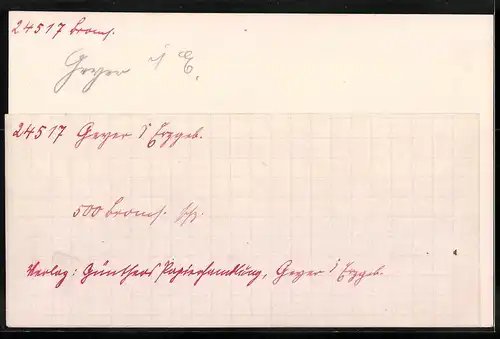 24517 Broms.
Geyer i E.
24517 Geyer i Erzgeb.
500 Broms.
Verlag: Günthers Papierhandlung, Geyer i Erzgeb.